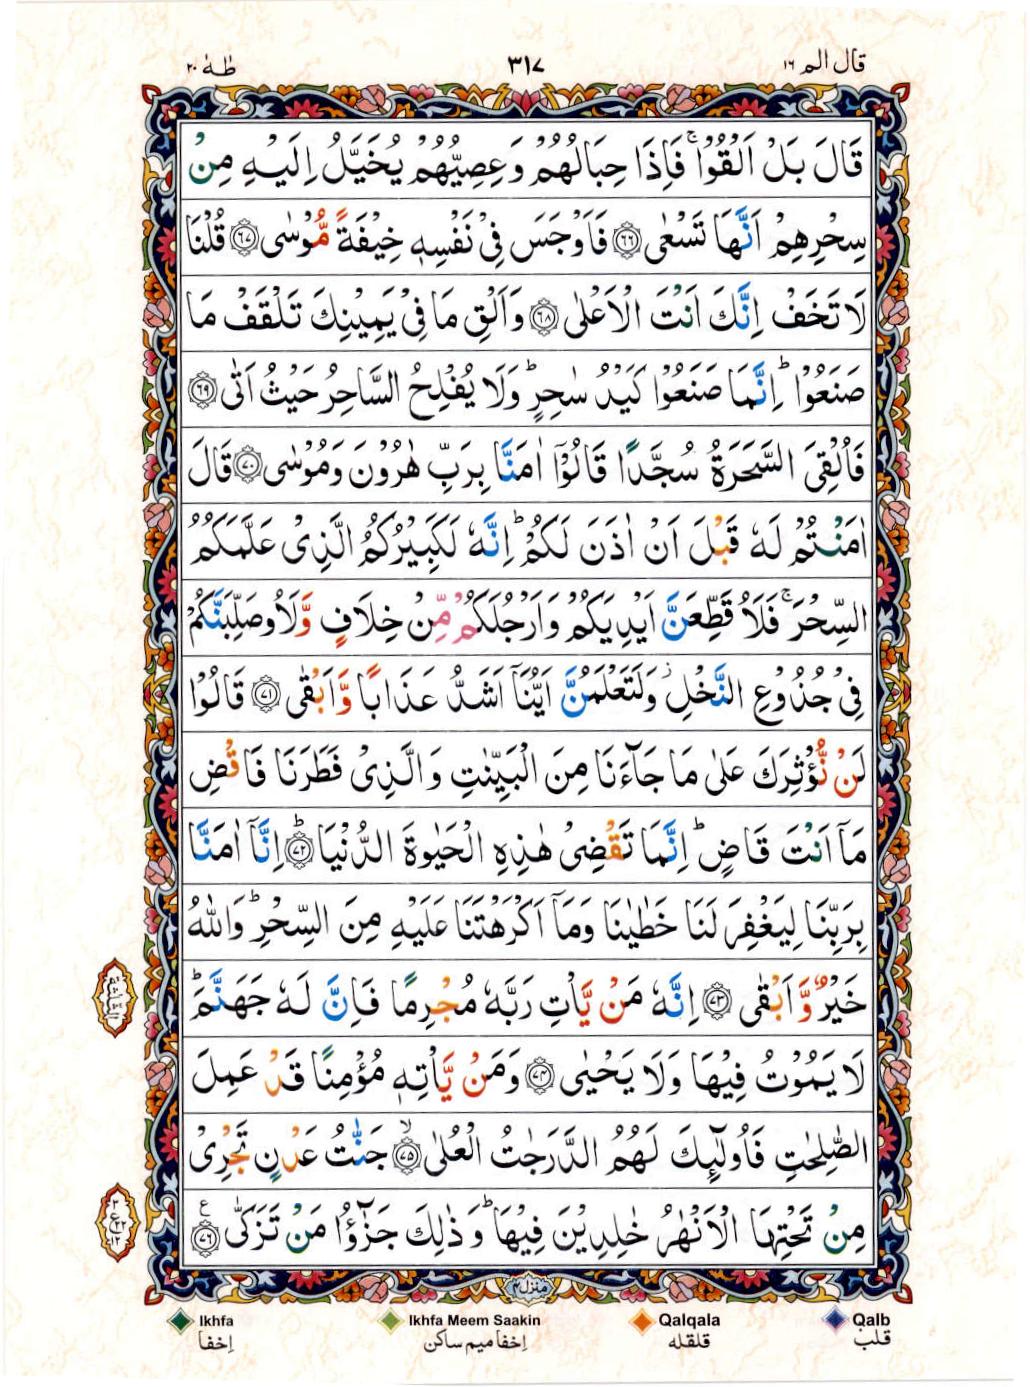 قال الم ۱۶
۳۱۷
طٰهٰ ۲۰
قَالَ بَلْ اَلْقُوْا ۚ فَاِذَا حِبَالُهُمْ وَ عِصِیُّهُمْ یُخَیَّلُ اِلَیْهِ مِنْ
سِحْرِهِمْ اَنَّهَا تَسْعٰی ﴿۶۶﴾ فَاَوْجَسَ فِیْ نَفْسِهٖ خِیْفَةً مُّوْسٰی ﴿۶۷﴾ قُلْنَا
لَا تَخَفْ اِنَّكَ اَنْتَ الْاَعْلٰی ﴿۶۸﴾ وَ اَلْقِ مَا فِیْ یَمِیْنِكَ تَلْقَفْ مَا
صَنَعُوْا ؕ اِنَّمَا صَنَعُوْا كَیْدُ سٰحِرٍ ؕ وَلَا یُفْلِحُ السَّاحِرُ حَیْثُ اَتٰی ﴿۶۹﴾
فَاُلْقِیَ السَّحَرَةُ سُجَّدًا قَالُوْۤا اٰمَنَّا بِرَبِّ هٰرُوْنَ وَمُوْسٰی ﴿۷۰﴾ قَالَ
اٰمَنْتُمْ لَهٗ قَبْلَ اَنْ اٰذَنَ لَكُمْ ؕ اِنَّهٗ لَكَبِیْرُكُمُ الَّذِیْ عَلَّمَكُمُ
السِّحْرَ ۚ فَلَاُ قَطِّعَنَّ اَیْدِیَكُمْ وَ اَرْجُلَكُمْ مِّنْ خِلَافٍ وَّلَاُوصَلِّبَنَّكُمْ
فِیْ جُذُوْعِ النَّخْلِ ؗ وَلَتَعْلَمُنَّ اَیُّنَاۤ اَشَدُّ عَذَابًا وَّ اَبْقٰی ﴿۷۱﴾ قَالُوْا
لَنْ نُّؤْثِرَكَ عَلٰی مَا جَآءَنَا مِنَ الْبَیِّنٰتِ وَ الَّذِیْ فَطَرَنَا فَاقْضِ
مَاۤ اَنْتَ قَاضٍ ؕ اِنَّمَا تَقْضِیْ هٰذِهِ الْحَیٰوةَ الدُّنْیَا ﴿۷۲﴾ؕ اِنَّاۤ اٰمَنَّا
بِرَبِّنَا لِیَغْفِرَ لَنَا خَطٰیٰنَا وَمَاۤ اَكْرَهْتَنَا عَلَیْهِ مِنَ السِّحْرِ ؕ وَاللّٰهُ
خَیْرٌ وَّ اَبْقٰی ﴿۷۳﴾ اِنَّهٗ مَنْ یَّاْتِ رَبَّهٗ مُجْرِمًا فَاِنَّ لَهٗ جَهَنَّمَ ؕ
لَا یَمُوْتُ فِیْهَا وَلَا یَحْیٰی ﴿۷۴﴾ وَمَنْ یَّاْتِهٖ مُؤْمِنًا قَدْ عَمِلَ
الصّٰلِحٰتِ فَاُولٰٓئِكَ لَهُمُ الدَّرَجٰتُ الْعُلٰی ﴿۷۵﴾ۙ جَنّٰتُ عَدْنٍ تَجْرِیْ
مِنْ تَحْتِهَا الْاَنْهٰرُ خٰلِدِیْنَ فِیْهَا ؕ وَ ذٰلِكَ جَزٰٓؤُا مَنْ تَزَكّٰی ﴿۷۶﴾ ع
۳
ع ۲۲
۱۲
منزل ۴
Ikhfa
Ikhfa Meem Saakin
Qalqala
Qalb
اِخفا
اِخفا میم ساکن
قلقله
قلب